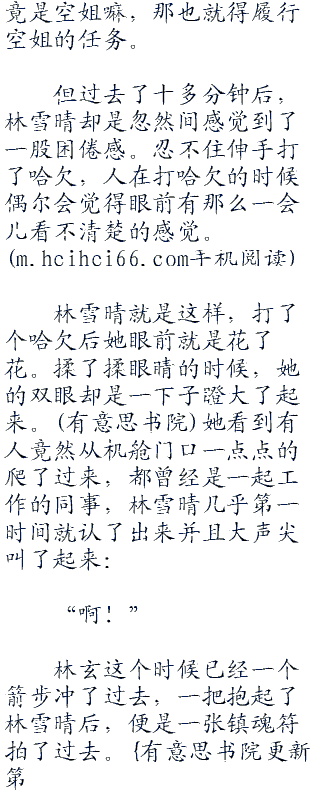 竟是空姐嘛，那也就得履行
空姐的任务。
但过去了十多分钟后，
林雪晴却是忽然间感觉到了
一股困倦感。忍不住伸手打
了哈欠，人在打哈欠的时候
偶尔会觉得眼前有那么一会
儿看不清楚的感觉。
(m.hcihci66.com手机阅读)
林雪晴就是这样，打了
个哈欠后她眼前就是花了
花。揉了揉眼睛的时候，她
的双眼却是一下子瞪大了起
来。(有意思书院)她看到有
人竟然从机舱门口一点点的
爬了过来，都曾经是一起工
作的同事，林雪晴几乎第一
时间就认了出来并且大声尖
叫了起来：
“啊！”
林玄这个时候已经一个
箭步冲了过去，一把抱起了
林雪晴后，便是一张镇魂符
拍了过去。{有意思书院更新
第